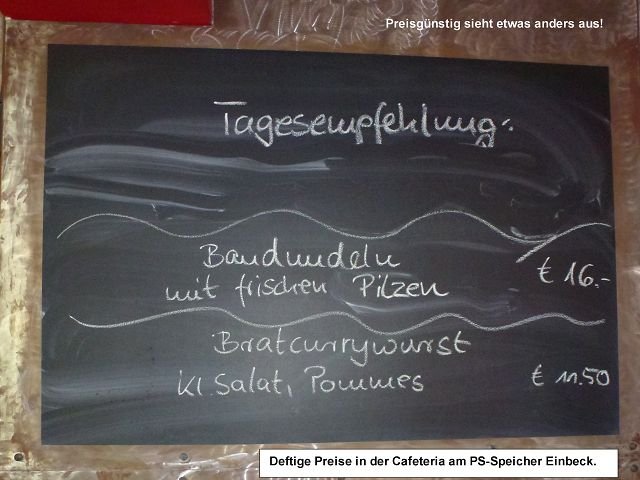 Preisgünstig sieht etwas anders aus!
Tagesempfehlung:
Bandnudeln
mit frischen Pilzen € 16.-
Bratcurrywurst
Kl. Salat, Pommes € 11.50
Deftige Preise in der Cafeteria am PS-Speicher Einbeck.